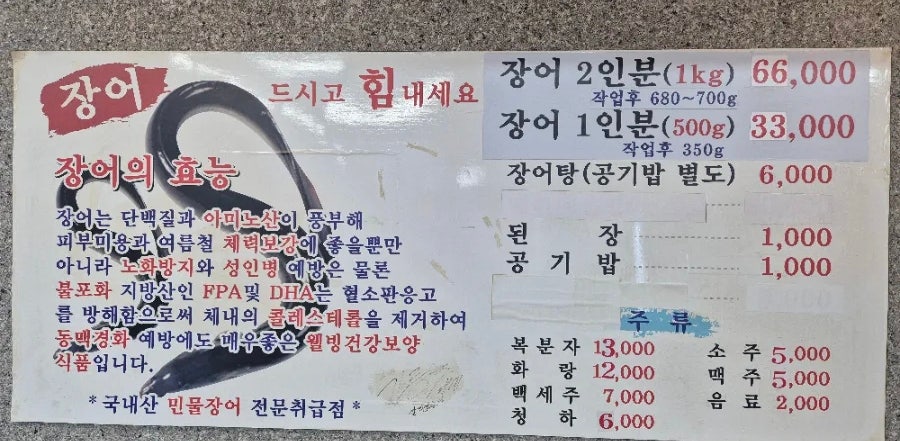 장어
드시고 힘내세요
장어의 효능
장어는 단백질과 아미노산이 풍부해
피부미용과 여름철 체력보강에 좋을뿐만
아니라 노화방지와 성인병 예방은 물론
불포화 지방산인 FPA및 DHA는 혈소판응고
를 방해함으로써 체내의 콜레스테롤을 제거하여
동맥경화 예방에도 매우좋은 웰빙건강보양
식품입니다.
*국내산 민물장어 전문취급점*
장어 2인분(1kg) 66,000
작업후 680~700g
장어 1인분(500g) 33,000
작업후 350g
장어탕(공기밥 별도) 6,000
된장 1,000
공기밥 1,000
주류
복분자 13,000
화랑 12,000
백세주 7,000
청하 6,000
소주 5,000
맥주 5,000
음료 2,000